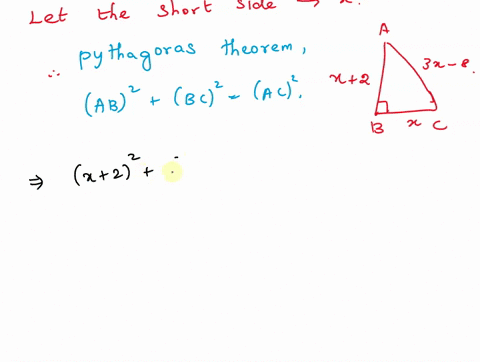 Let the short side → x.
∴ pythagoras theorem,
(AB)² + (BC)² = (AC)².
A
x+2
3x-8.
B
x
C
⇒ (x+2)² +